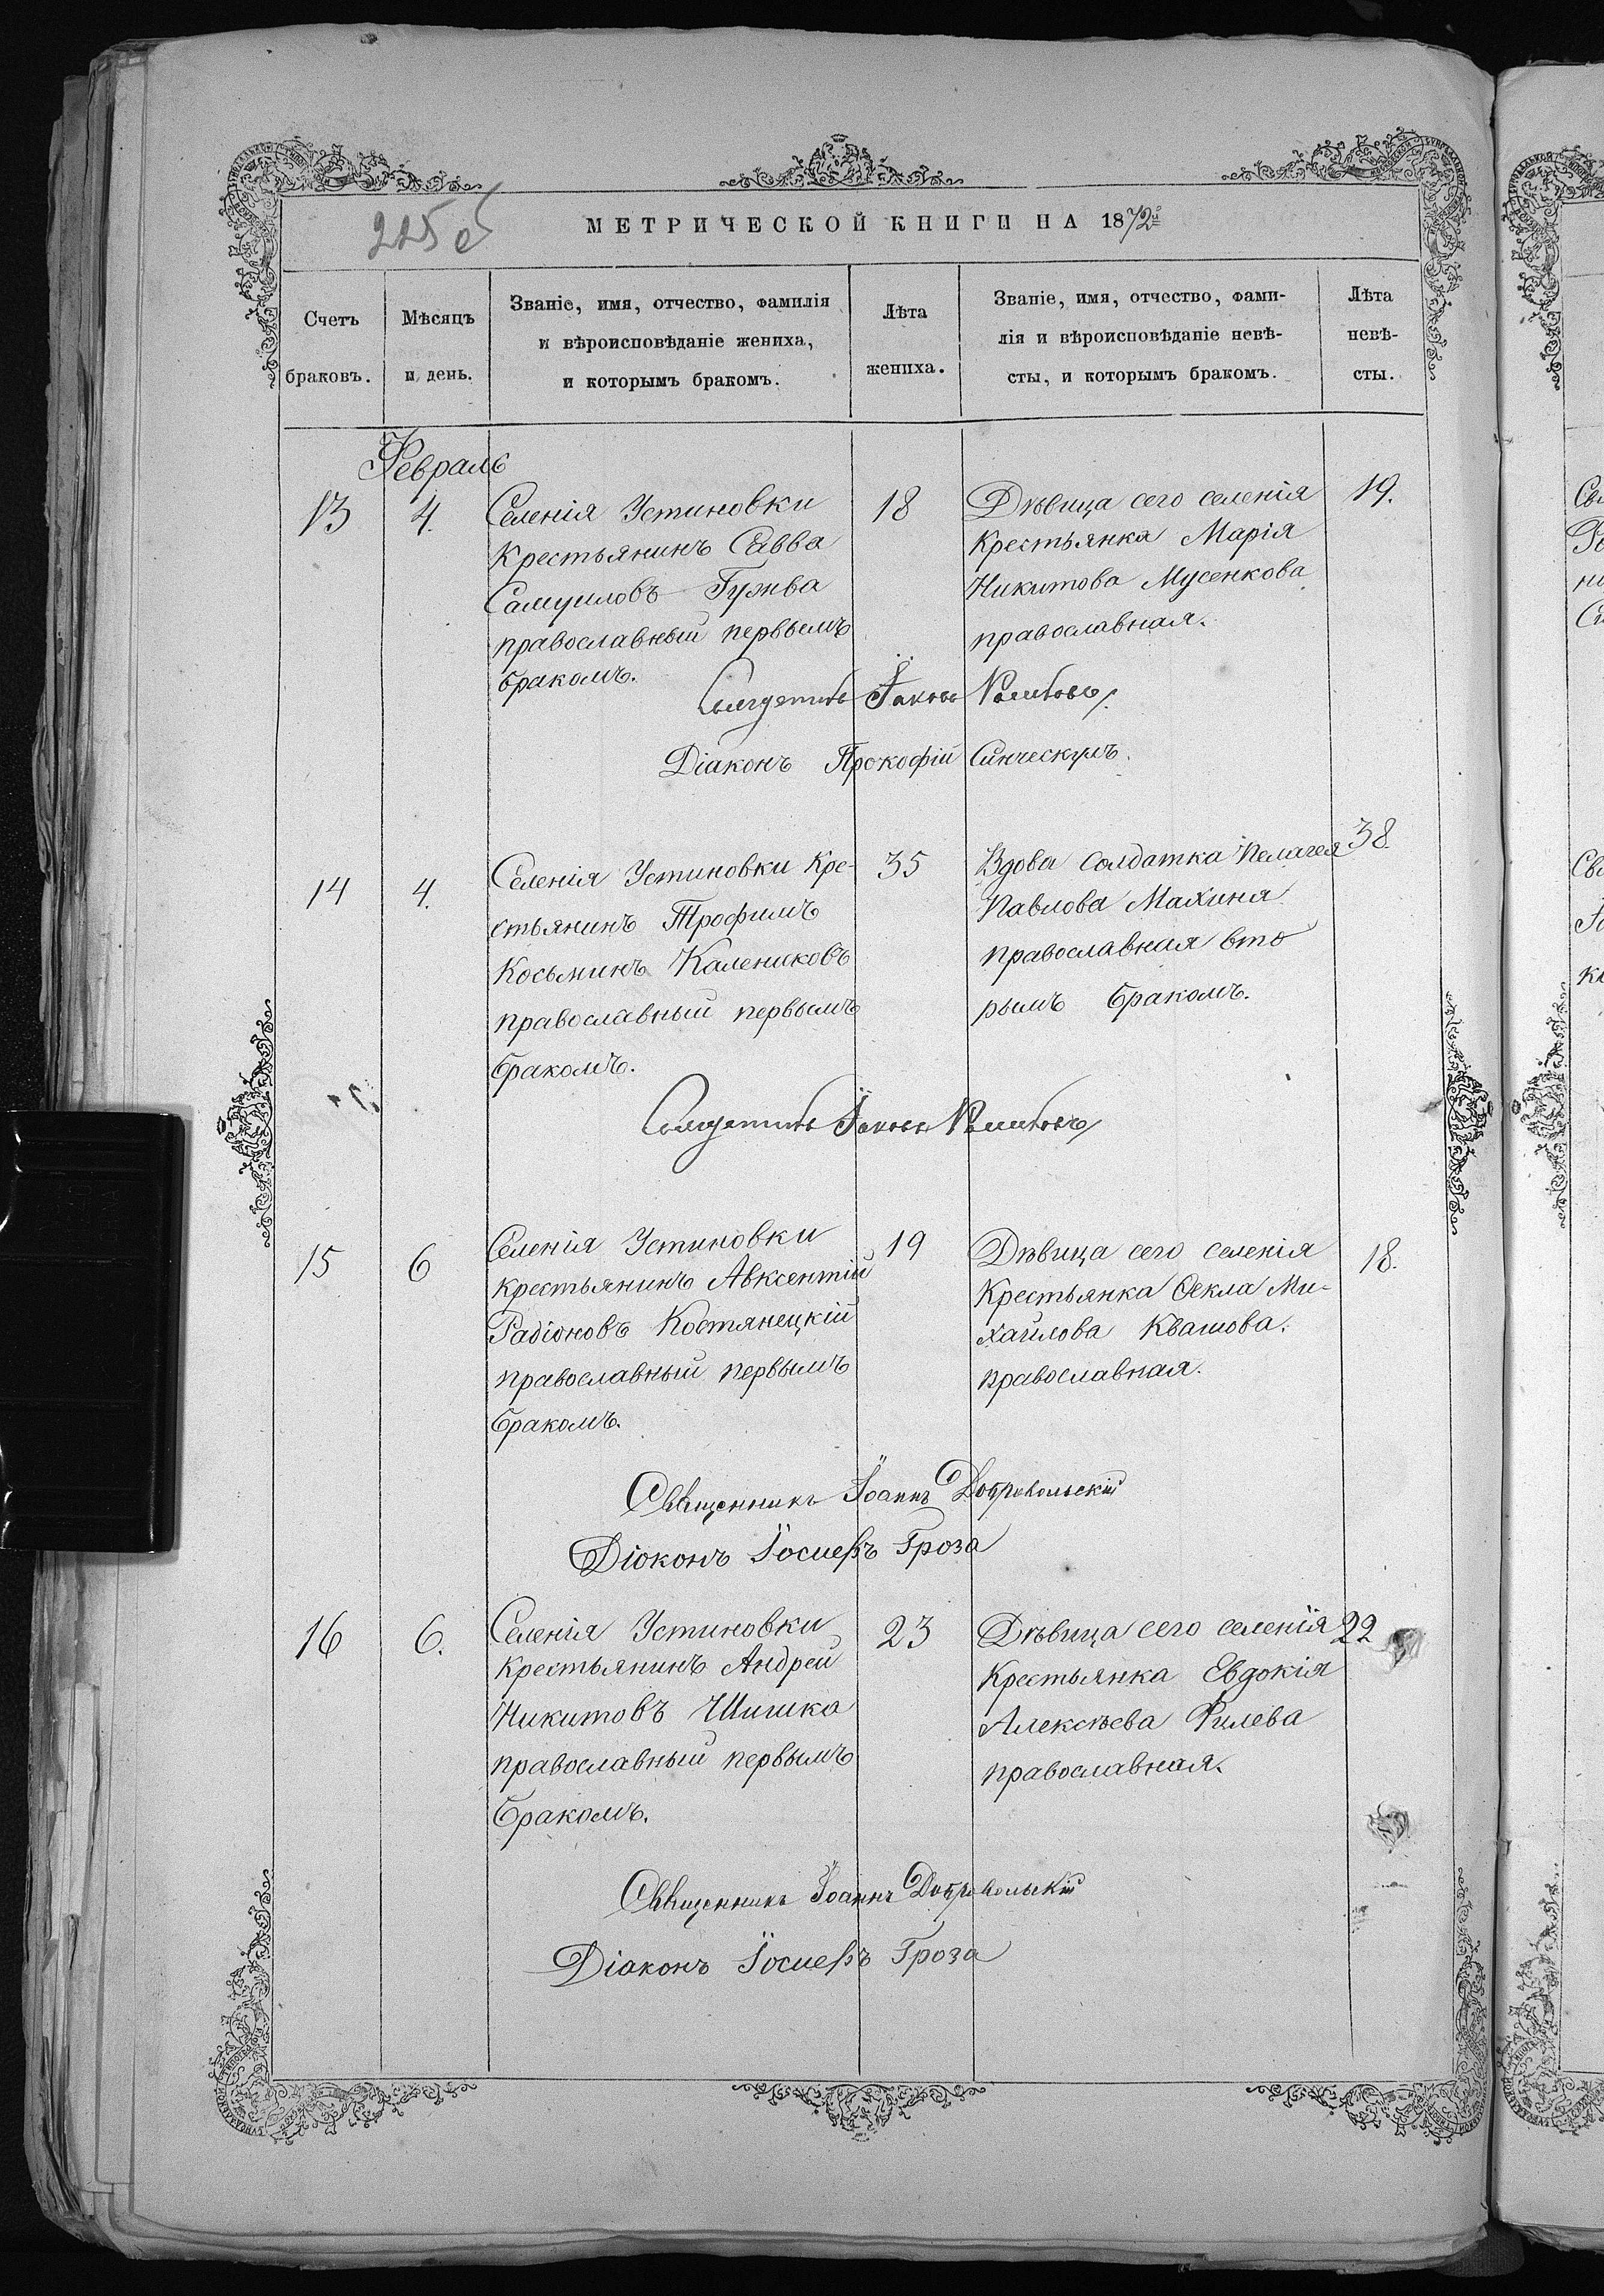 225 об
МЕТРИЧЕСКОЙ КНИГИ НА 1872й
Счетъ
браковъ.
Мѣсяцъ
и день.
Званіе, имя, отчество, фамилія
и вѣроисповѣданіе жениха,
и которымъ бракомъ.
Лѣта
жениха.
Званіе, имя, отчество, фами-
лія и вѣроисповѣданіе невѣ-
сты, и которымъ бракомъ.
Лѣта
невѣ-
сты.
Февраль
13
4.
Селенія Устиновки
крестьянинъ Савва
Самуиловъ Гужва
православный первымъ
бракомъ.
18
Дѣвица сего селенія
крестьянка Марія
Никитова Мусенкова
православная.
19.
Іаковъ
Діаконъ Прокофій Синческулъ.
14
4.
Селенія Устиновки кре-
стьянинъ Трофимъ
Косьминъ Калениковъ
православный первымъ
бракомъ.
35
Вдова солдатка Пелагея
Павлова Махиня
православная вто
рымъ бракомъ.
38.
Іаковъ
15
6
Селенія Устиновки
крестьянинъ Авксентій
Радіоновъ Костянецкій
православный первымъ
бракомъ.
19
Дѣвица сего селенія
Крестьянка Ѳекла Ми-
хайлова Квашова.
православная.
18.
Священникъ Іоаннъ Добровольскій
Діоконъ Іосиефъ Гроза
16
6.
Селенія Устиновки
крестьянинъ Андрей
Никитовъ Шишка
православный первымъ
бракомъ.
23
Дѣвица сего селенія
крестьянка Евдокія
Алексѣева Филева
православная.
22
Священникъ Іоаннъ Добровольскій
Діаконъ Іосиефъ Гроза